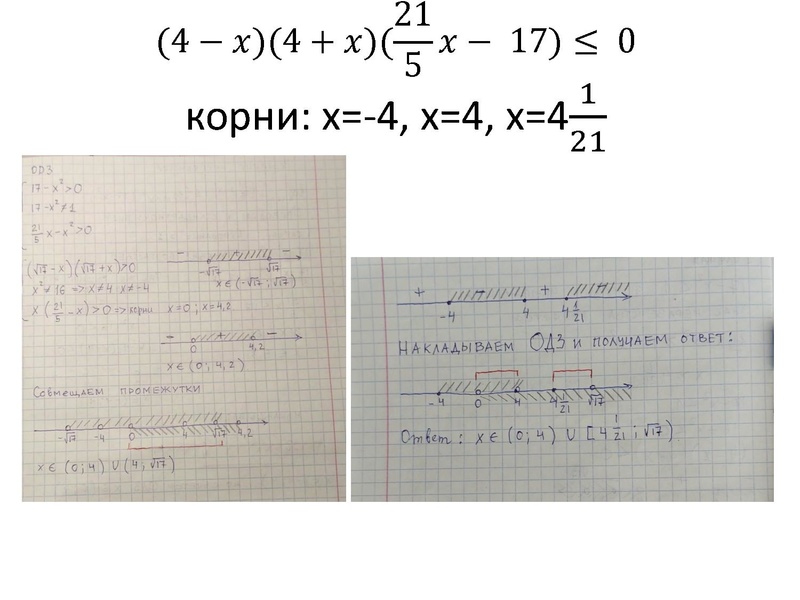 (4 − x)(4 + x)(21/5 x − 17) ≤ 0
корни: x=-4, x=4, x=4 1/21
ОДЗ
17 - x² > 0
17 - x² ≠ 1
21/5 x - x² > 0
(√17 - x)(√17 + x) > 0
− + −
-√17 √17
x ∈ (-√17 ; √17)
x² ≠ 16 => x ≠ 4 x ≠ -4
x (21/5 - x) > 0 => корни x = 0 ; x = 4,2
− + −
0 4,2
x ∈ (0 ; 4,2)
Совмещаем промежутки
-√17 -4 0 4 √17 4,2
x ∈ (0 ; 4) ∪ (4 ; √17)
+ − + −
-4 4 4 1/21
Накладываем ОДЗ и получаем ответ:
-4 0 4 4 1/21 √17
Ответ: x ∈ (0 ; 4) ∪ [4 1/21 ; √17)